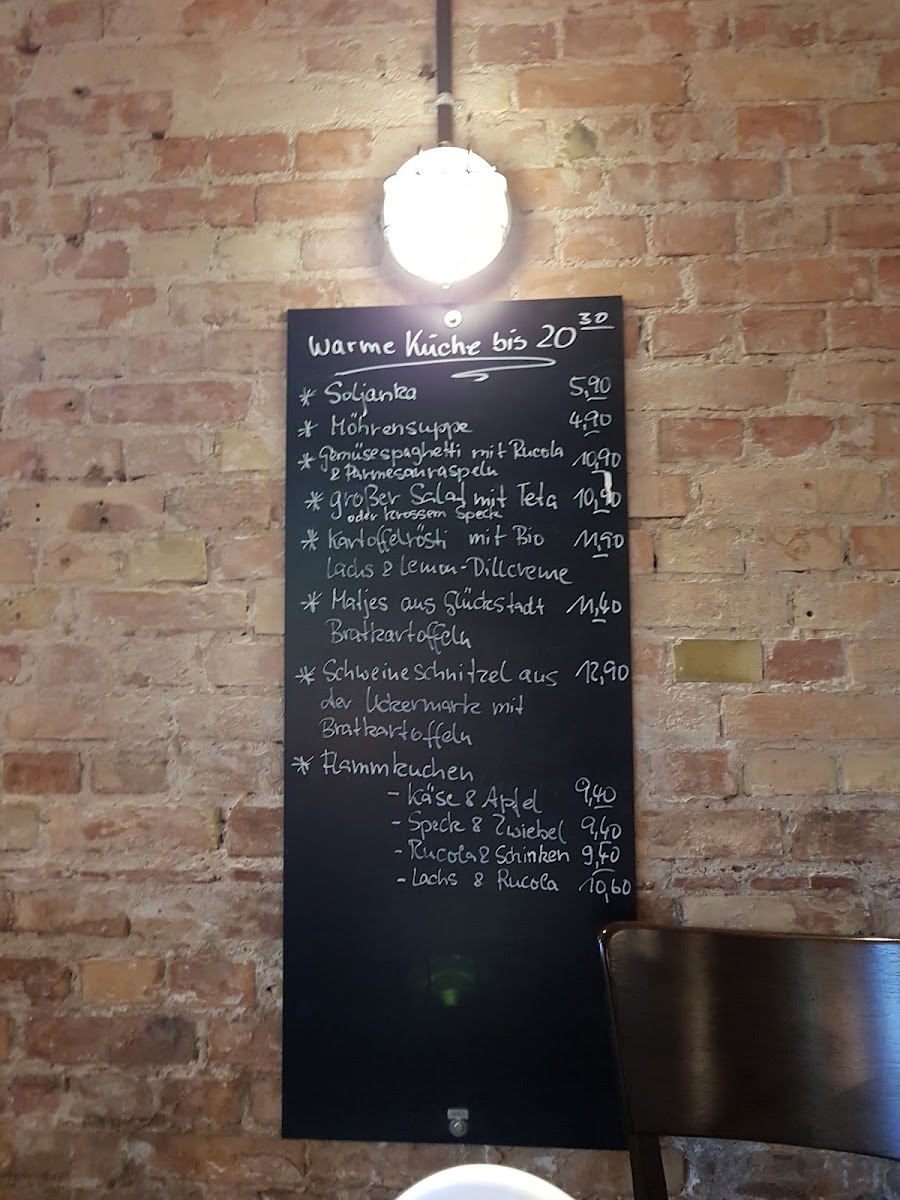 Warme Küche bis 20 30
* Soljanka 5,90
* Möhrensuppe 4,90
* Gemüsespaghetti mit Rucola 10,90
& Parmesanraspeln
* großer Salat mit Feta 10,90
oder krossem Speck
* Kartoffelrösti mit Bio 11,90
Lachs & Lemon-Dillcreme
* Matjes aus Glückstadt 11,40
Bratkartoffeln
* Schweineschnitzel aus 12,90
der Uckermark mit
Bratkartoffeln
* Flammkuchen
- Käse & Apfel 9,40
- Speck & Zwiebel 9,40
- Rucola & Schinken 9,40
- Lachs & Rucola 10,60